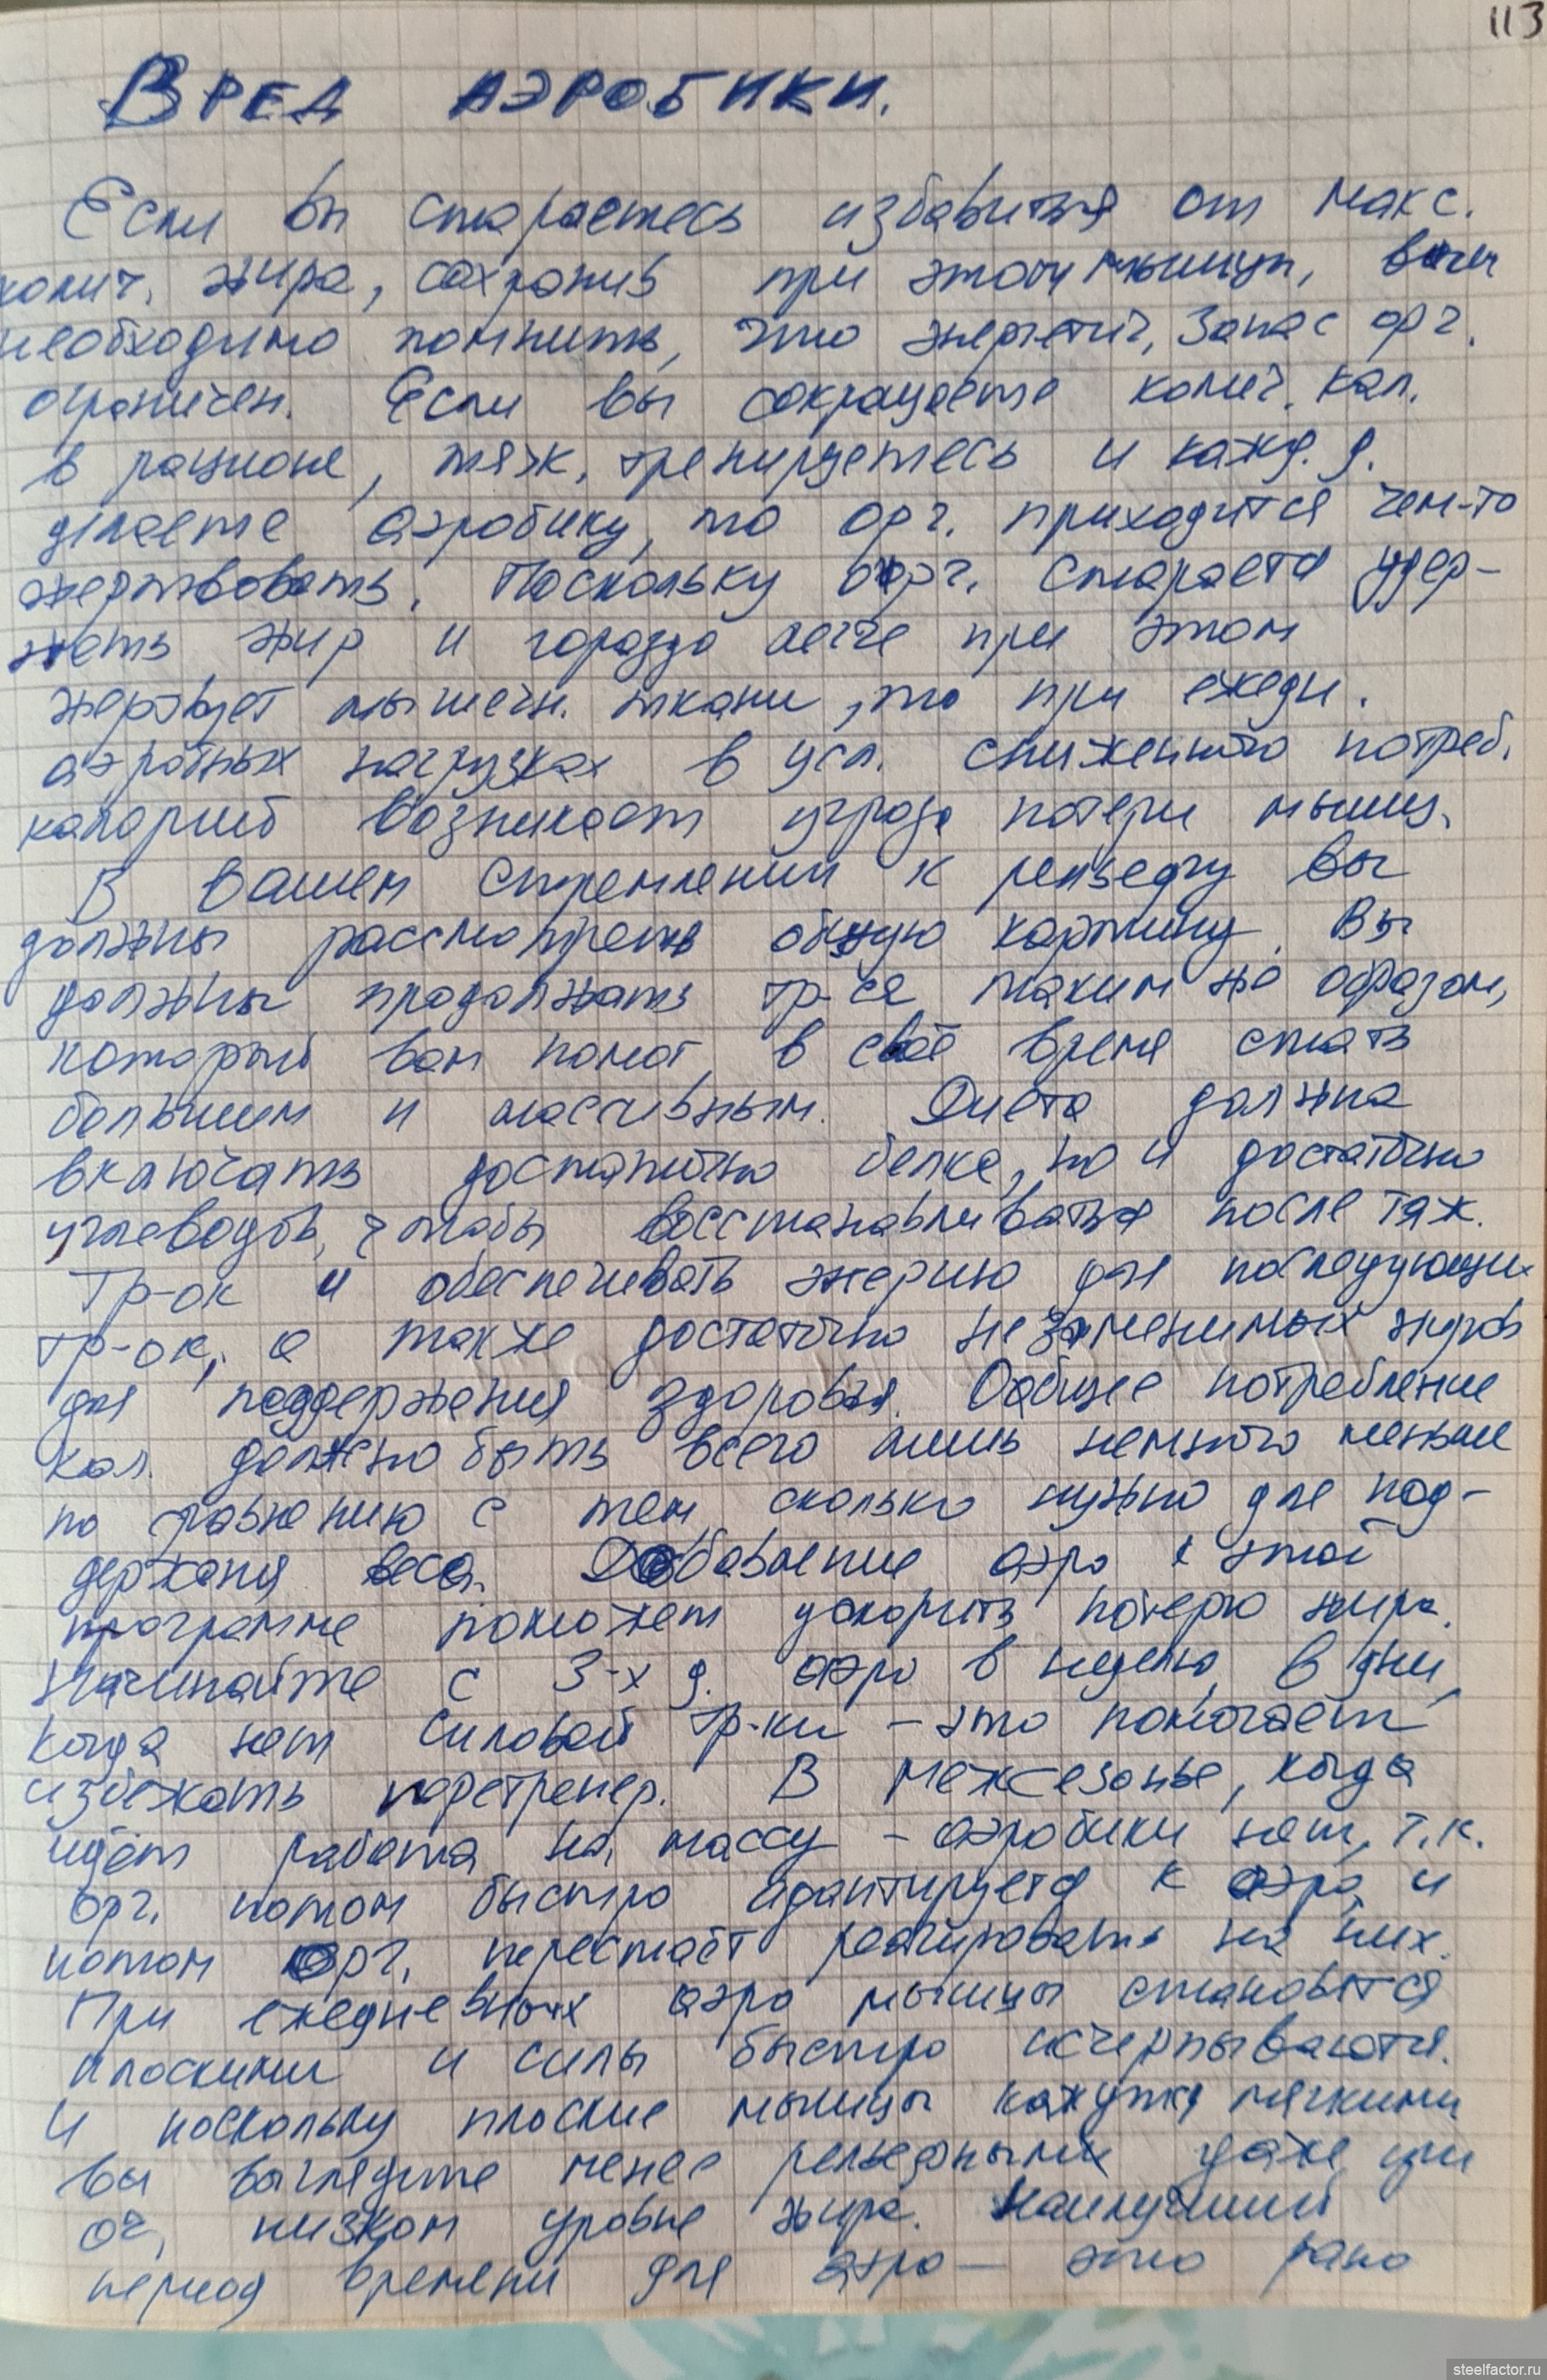 113
Вред аэробики.
Если вы стараетесь избавиться от макс.
колич. жира, сохранив при этом мышцы, вам
необходимо помнить, что энергетич. запас орг.
ограничен. Если вы сокращаете колич. кал.
в рационе, тяж. тренируетесь и кажд. д.
делаете аэробику, то орг. приходится чем-то
жертвовать. Поскольку орг. старается удер-
жать жир и гораздо легче при этом
жертвует мышечн. ткани, то при ежедн.
аэробных нагрузках в усл. сниженного потреб.
калорий возникает угроза потери мышц.
В вашем стремлении к рельефу вы
должны рассмотреть общую картину. Вы
должны продолжать тр-ся таким же образом,
который вам помог в своё время стать
большим и массивным. Диета должна
включать достаточно белка, но и достаточно
углеводов, чтобы восстанавливаться после тяж.
тр-ок и обеспечивать энергию для последующих
тр-ок, а также достаточно незаменимых жиров
для поддержения здоровья. Общее потребление
кал. должно быть всего лишь немного меньше
по сравнению с тем сколько нужно для под-
держания веса. Добавление аэро к этой
программе поможет ускорить потерю жира.
Начинайте с 3-х д. аэро в неделю, в дни,
когда нет силовой тр-ки - это помогает
избежать перетренер. В межсезонье, когда
идёт работа на массу - аэробики нет, т.к.
орг. потом быстро адаптируется к аэро, и
потом орг. перестаёт реагировать на них.
При ежедневных аэро мышцы становятся
плоскими и силы быстро исчерпываются.
И поскольку плоские мышцы кажутся мягкими
вы выглядите менее рельефными даже при
оч. низком уровне жира. Наилучший
период времени для аэро — это рано
steelfactor.ru